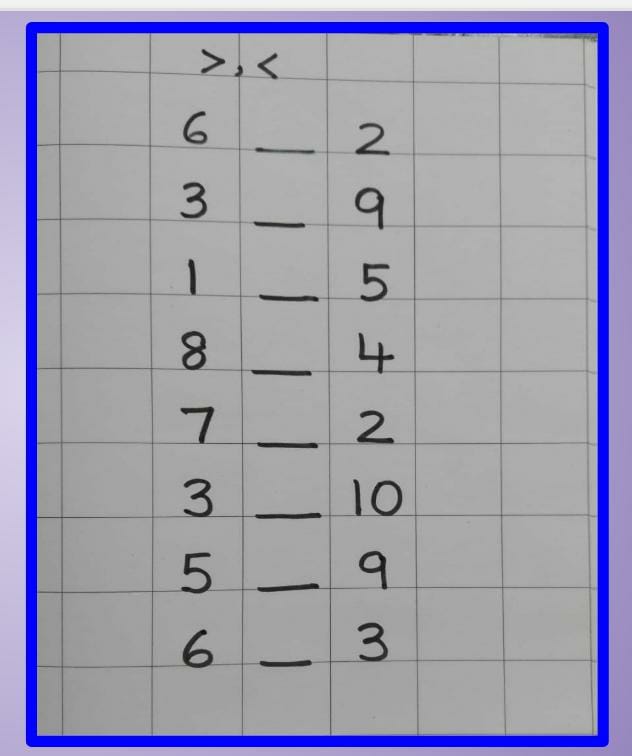 >, <
6 __ 2
3 __ 9
1 __ 5
8 __ 4
7 __ 2
3 __ 10
5 __ 9
6 __ 3